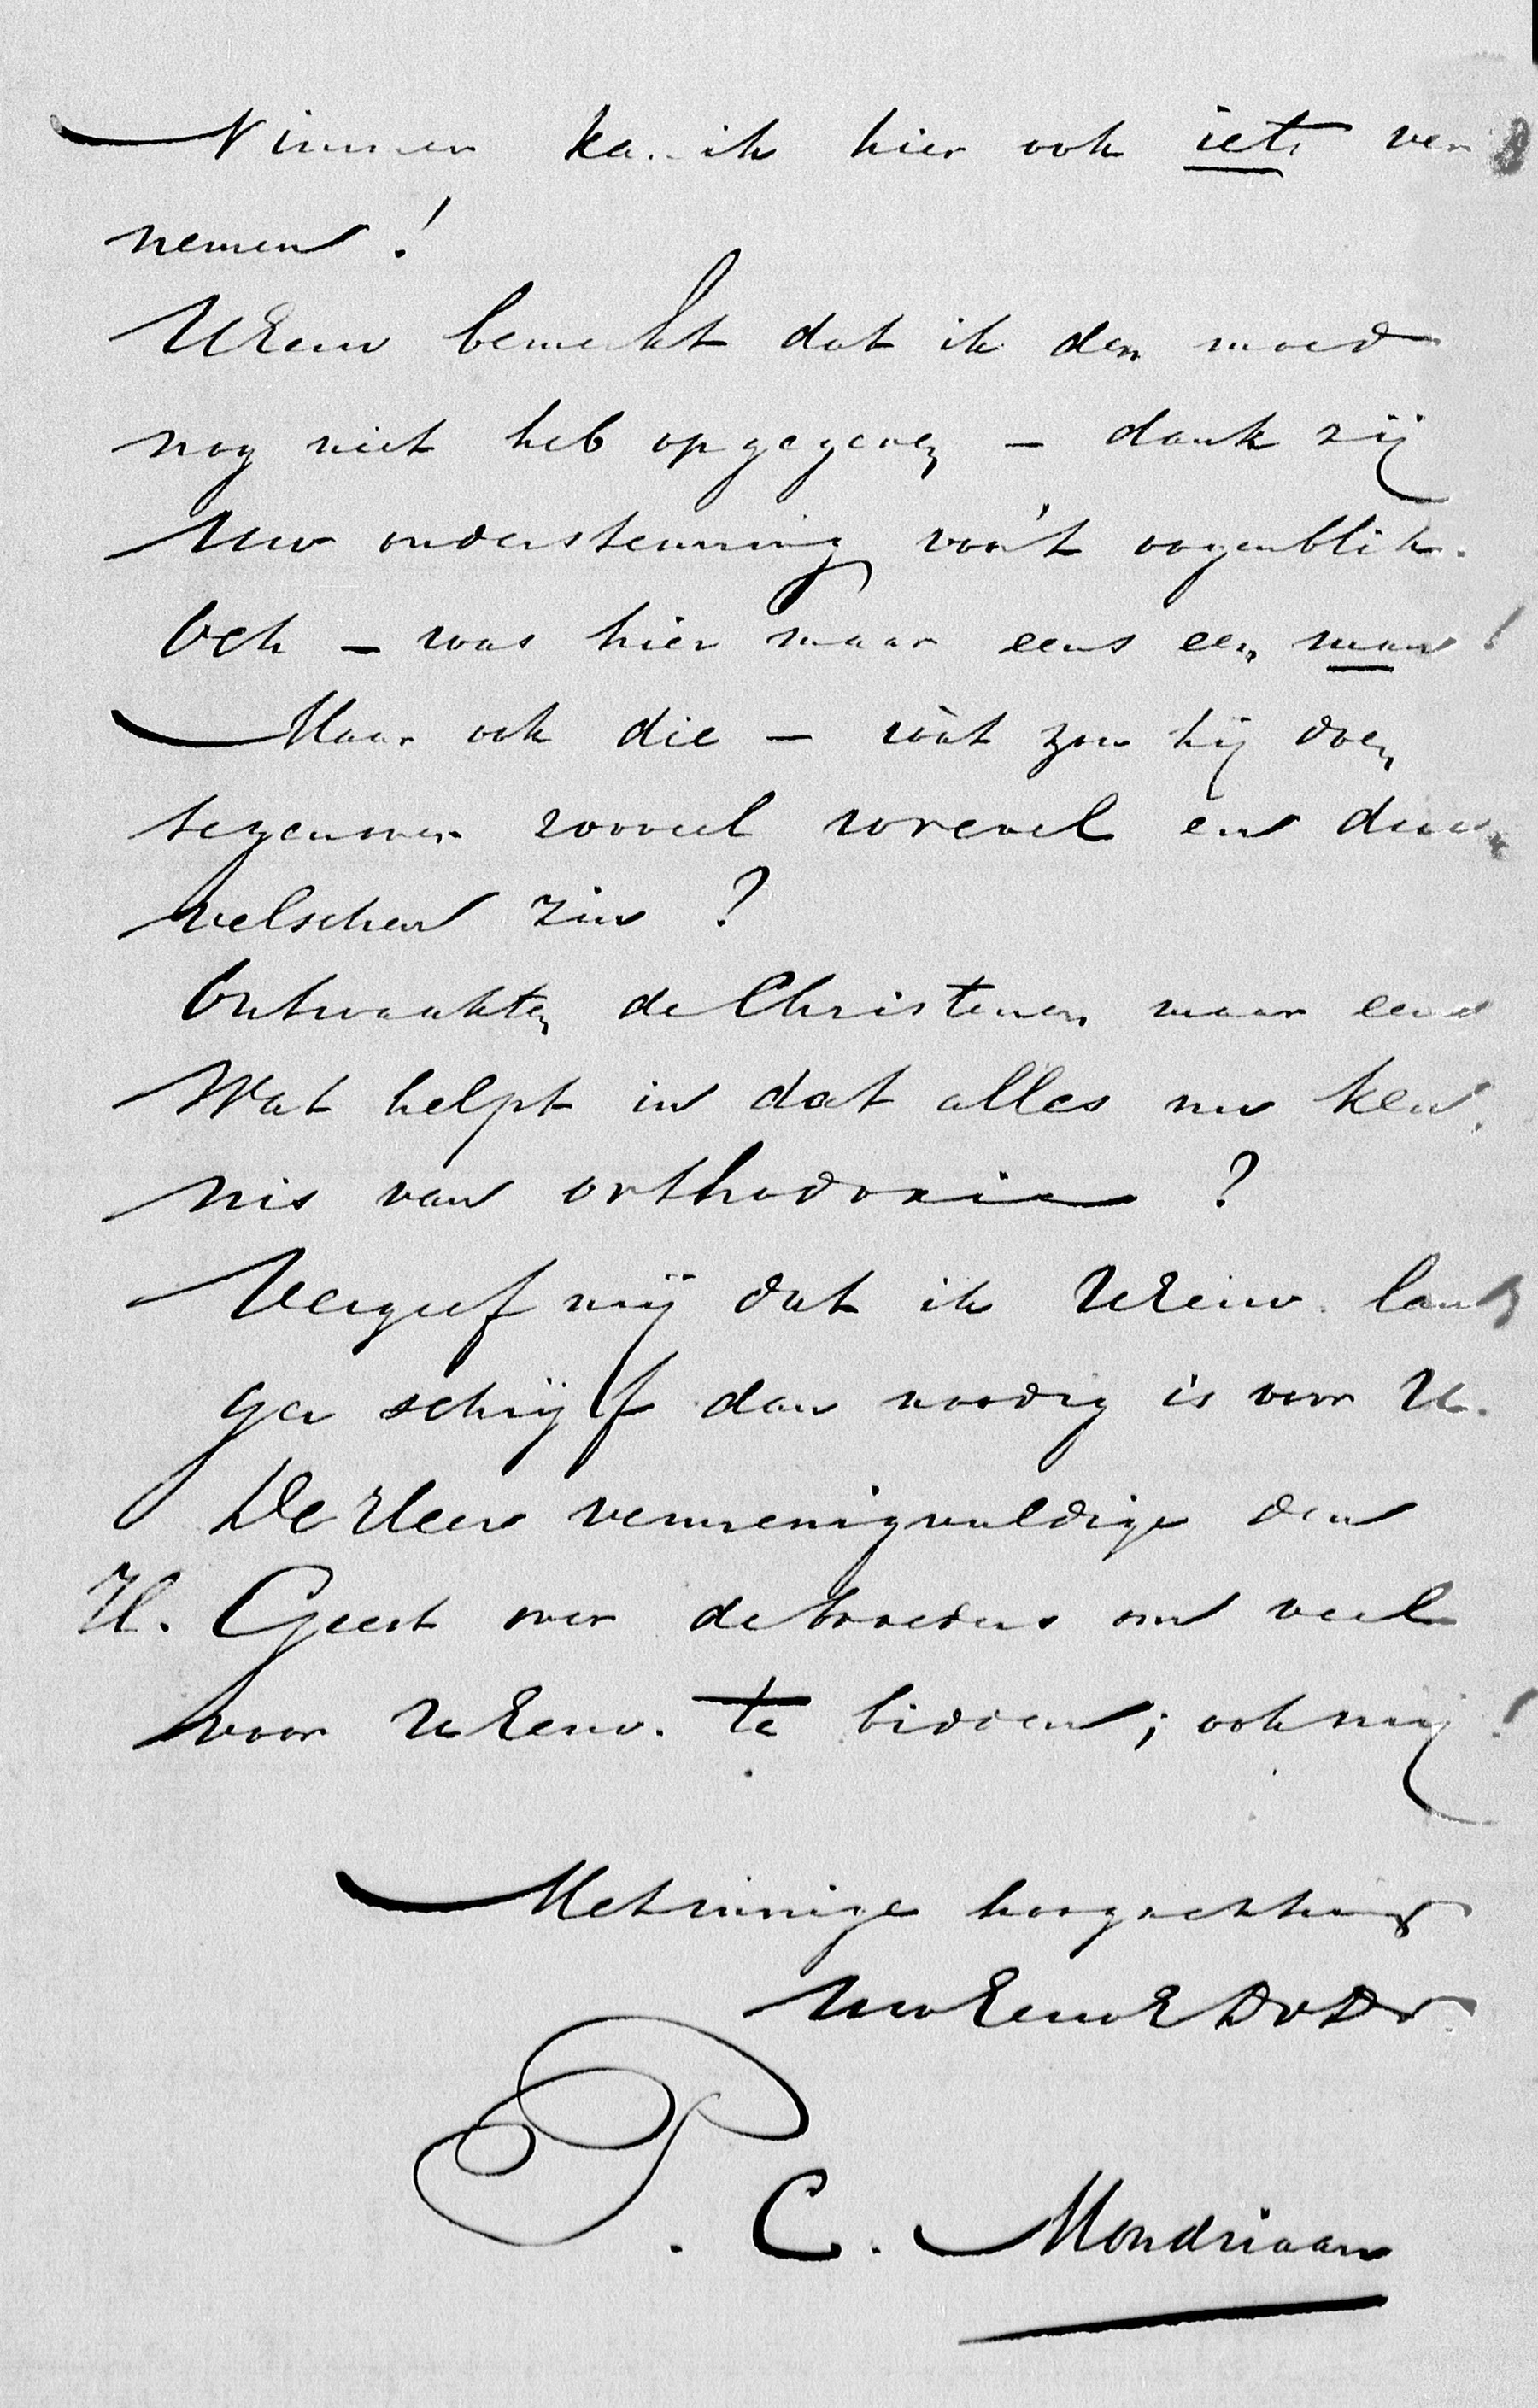 Nimmer kan ik hier ook iets ver
nemen!
UEerw bemerkt dat ik den moed
nog niet heb opgegeven – dank zij
Uw ondersteuning voor 't oogenblik.
Och – was hier maar eens een man!
Maar ook die – wàt zou hij doen
tegenover zooveel wrevel en dui
velschen zin?
Ontwaakten de Christenen maar eens
Wat helpt in dat alles nu ken
nis van orthodoxie?
Vergeef mij dat ik UEerw. lan
ger schrijf dan noodig is voor U.
De Heer vermenigvuldige den
H. Geest over de broeders om veel
voor UEerw. te bidden; ook mij!
Met innige hoogachting
UwEerwEDvDr.
P. C. Mondriaan